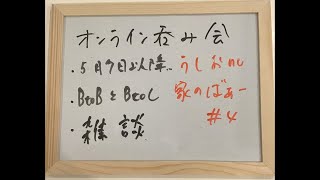 オンライン呑み会
・5月9日以降..
・BtoBとBtoC
・雑談
うしおの
家のばぁー
#4